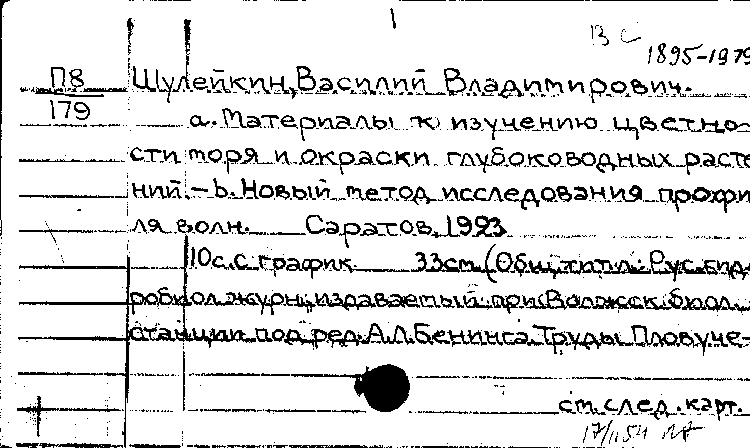 1895-1979
П8
179
Шулейкин, Василий Владимирович.
а. Материалы к изучению цветно-
сти моря и окраски глубоководных расте
ний.-b. Новый метод исследования профи
ля волн. Саратов, 1923
10с. с график. 33см. (Общ. титл.: Рус. гид
робиол. журн., издаваемый при Волжск. биол.
станции под ред. А.Л. Бенинга. Труды Пловуче-
см. след. карт.